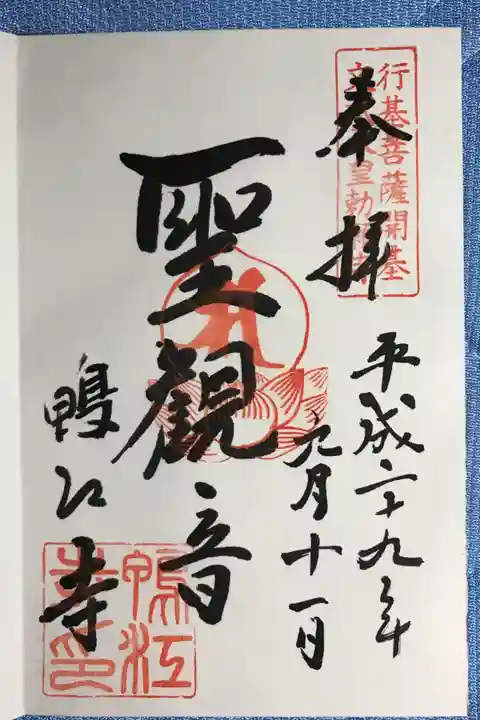 行基菩薩開基
皇勅
奉拝
平成二十九年
六月十一日
聖觀音
鴨江寺
鴨江
寺印